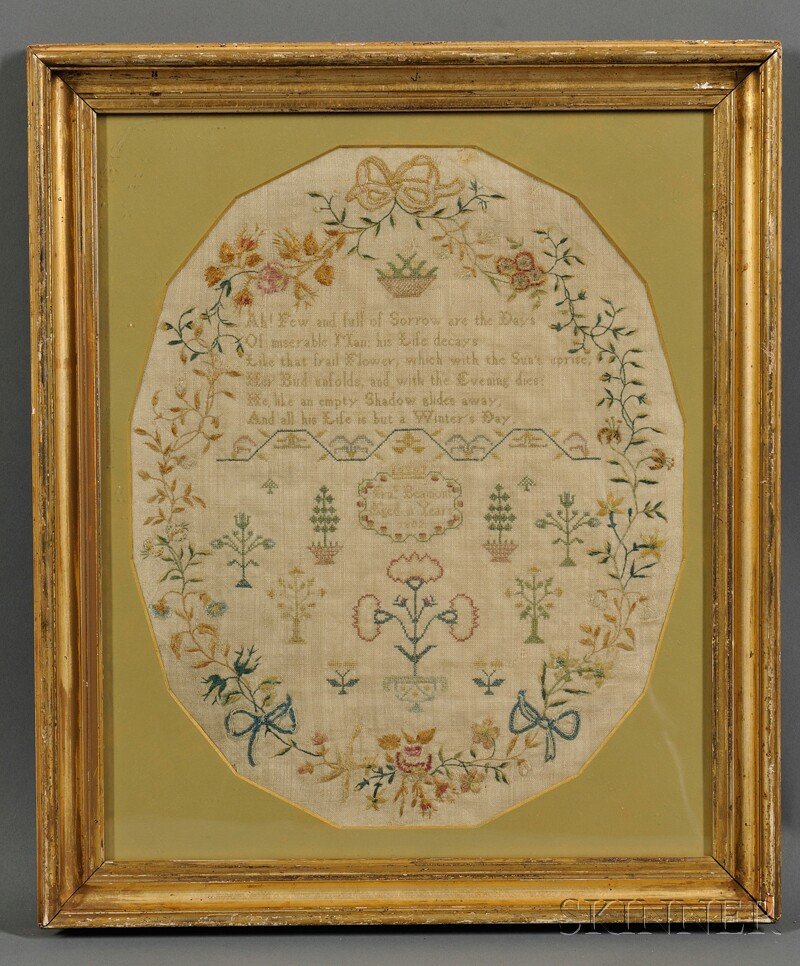 Ah! Few and full of Sorrow are the Days
Of miserable Man: his Life decays
Like that frail Flower, which with the Sun's uprise,
Her Bud unfolds, and with the Evening dies:
He, like an empty Shadow glides away,
And all his Life is but a Winter's Day
Beamont
Aged Year
SKINNER